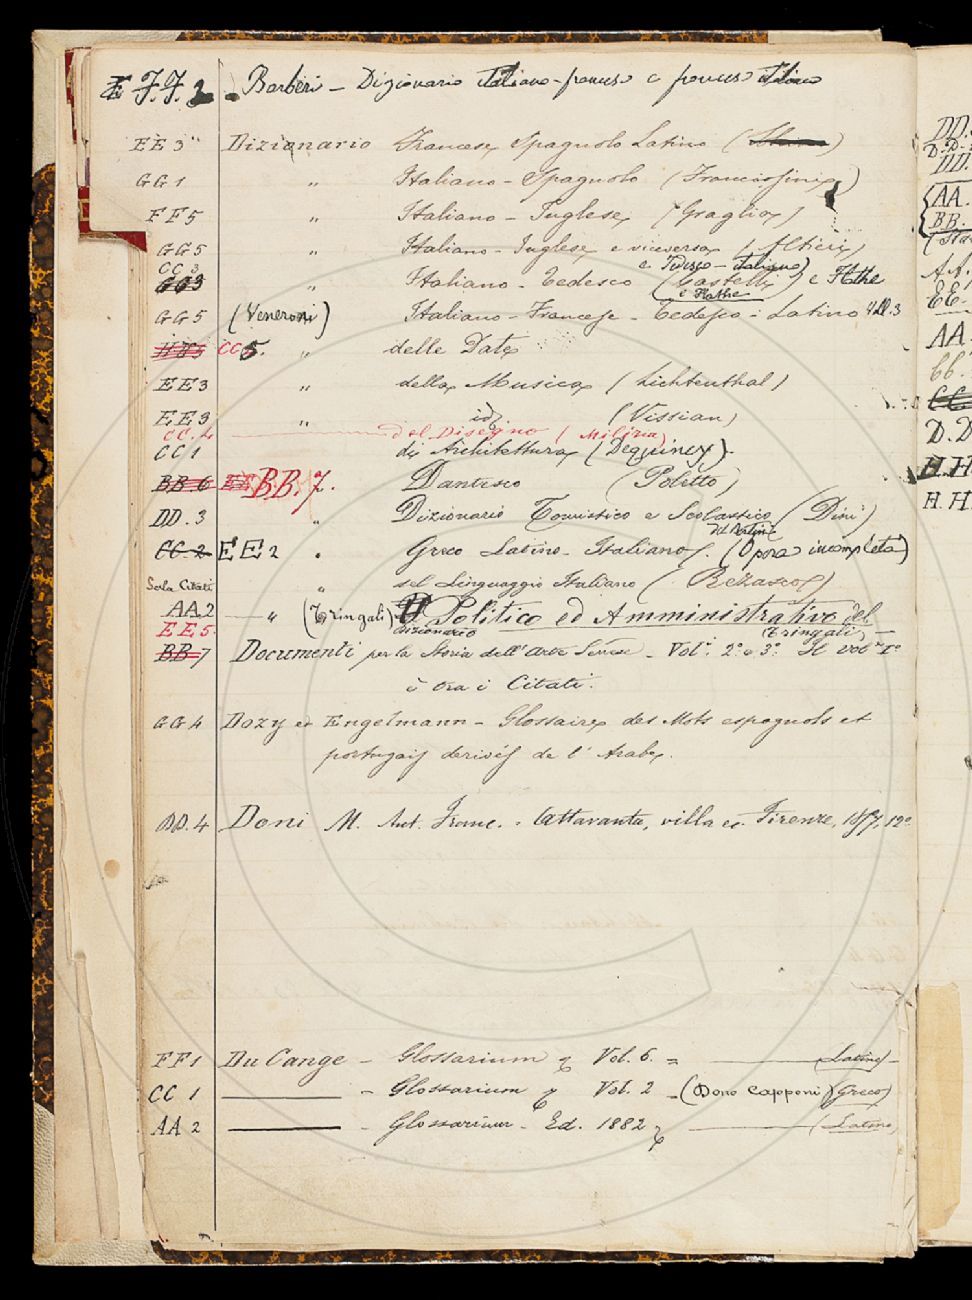 F.F. 2 Barberi - Dizionario italiano-francese e francese italiano
EE 3 Dizionario Francese Spagnolo Latino
GG 1 " Italiano - Spagnolo (Franciosini)
FF 5 " Italiano - Inglese (Graglia)
GG 5 " Italiano - Inglese e viceversa (Altieri)
e Tedesco - italiano
CC 3
GG3 " Italiano - Tedesco (Castelli) e Flathe
e Flathe
GG 5 (Veneroni) Italiano - Francese - Tedesco - Latino
HH5 CC 5. " delle Date
EE 3 " della Musica (Lichtenthal)
EE 3 " id (Vissian)
CC. 4 del Disegno (Milizia)
CC 1 di Architettura (Dequincy).
BB. 6 BB. 7. Dantesco (Poletto)
DD. 3 " Dizionario Tomistico e Scolastico (Dini)
CC. 2 EE 2 " Greco Latino - Italiano. (Opera incompleta)
Sala Citati " del Linguaggio Italiano (Rezasco)
AA 2 " (Tringali) Politico ed Amministrativo del
EE 5. Dizionario (Tringali)
BB 7 Documenti per la Storia dell'Arte Senese - Vol. 2° e 3° Il vol. I°
è tra i Citati.
GG 4 Dozy et Engelmann - Glossaire des Mots espagnols et
portugais derivés de l'Arabe.
DD. 4 Doni M. Ant. Franc. - Attavanta, villa ec. Firenze, 1857, 12°
FF 1 Du Cange - Glossarium Vol. 6. = (Latino) -
CC 1 - Glossarium Vol. 2 - (Dono Capponi) (Greco)
AA 2 - Glossarium - Ed. 1882 (Latino)
DD.
D.D.
AA.
BB.
AA.
EE.
AA.
bb.
CC.
D.D
H.H.
H.H.